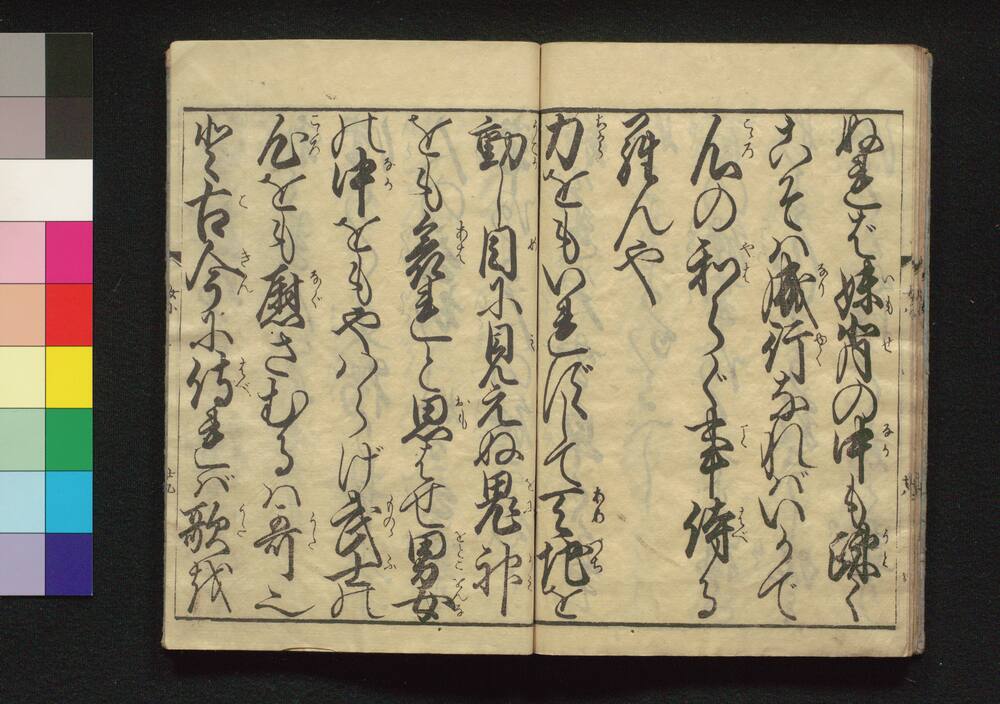 ぬればば妹背の中も疎く
こそハ成行なれバいかで
心の和らぐ事侍る
羅んや
力をもいれずして天地を
動し目に見えぬ鬼神
をも哀れと思はせ男女
の中をもやハらげ武士の
心をも慰さむるハ哥也
と古今に侍れバ歌を